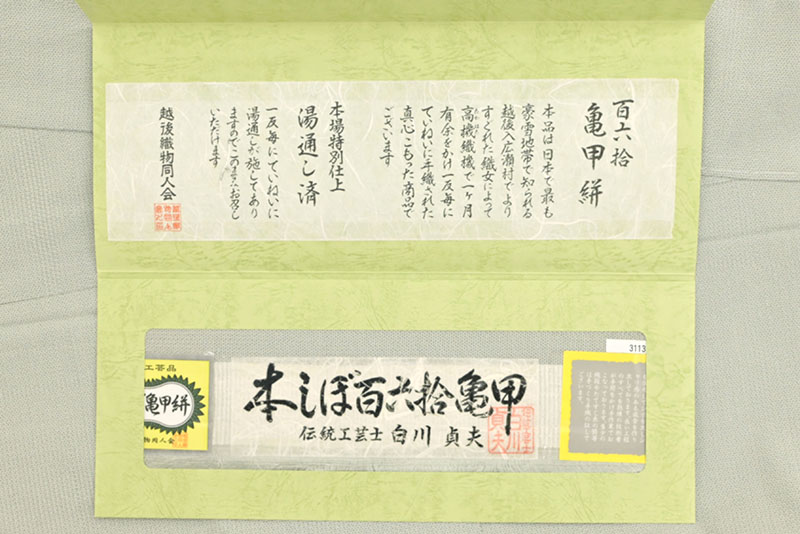 百六拾
亀甲絣
本品は日本で最も
豪雪地帯で知られる
越後入広瀬村でより
すぐれた織女によって
高機織機で一ヶ月
有余をかけ一反毎に
ていねいに手織された
真心こもった商品で
ございます
本場特別仕上
湯通し済
一反毎にていねいに
湯通しが施してあり
ますのでこのままお召し
いただけます
越後織物同人会
工芸品
亀甲絣
物同人会
本しぼ百六拾亀甲
伝統工芸士 白川 貞夫
3113